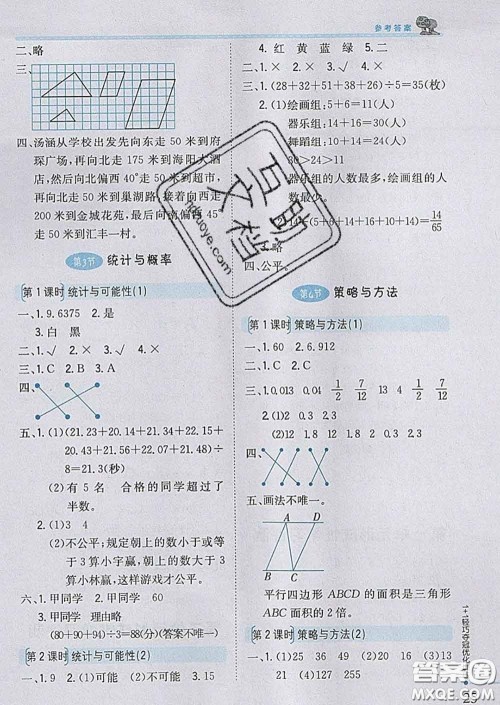 参考答案
二、略
三、
四、汤涵从学校出发先向东走 50 米到府
琛广场，再向北走 175 米到海阳大酒
店，然后向北偏西 40°走 50 米到
，再向北走到巢湖路，接着向西走
200 米到金城花苑，最后向南偏西 45°
走 50 米到汇丰一村。
第3节 统计与概率
第 1 课时 统计与可能性(1)
一、1. 9.6375 2. 是
3. 白 黑
二、1. √ 2. × 3. √ 4. ×
三、1. C 2. B 3. A
四、
五、1. (1)(21.23+20.14+21.31+22.15+
20.43+21.56+22.17+21.48)÷
8=21.3(秒)
(2)有 5 名 合格的同学超过了
半数。
2. (1)3 4
(2)不公平；规定朝上的数小于或等
于 3 算小宇赢，朝上的数大于 3
算小林赢，这样才公平。
六、1. 甲同学 2. 甲同学 60
3. 甲同学 理由略
(80+90+94)÷3=88(分)(答案不唯一)
第 2 课时 统计与可能性(2)
一、1. 9 2. (1)可能 (2)不可能
4. 红 黄 蓝 绿 5. 二
二、1. × 2. × 3. ×
三、1. (28+32+51+38+26)÷5=35(枚)
2. (1)绘画组：5+6=11(人)
器乐组：14+16=30(人)
舞蹈组：14+10=24(人)
30>24>11
器乐组的人数最多，绘画组的人
数最少。
(2)14÷(5+6+14+16+10+14)=14/65
略
四、公平。
第4节 策略与方法
第 1 课时 策略与方法(1)
一、1. 20 2. 6,912
二、1. C 2. B
三、1. 0.013 0.04 1/2 7/12 3/2 7/12
2. (1)2 4 8
(2)12 1.8 12 2 18 2
四、
五、画法不唯一。
A D
B C
平行四边形 ABCD 的面积是三角形
ABC 面积的 2 倍。
第 2 课时 策略与方法(2)
一、1. (1)25 36 49 (2)16 33 65
(3)127 255 (4)27 81 243
答案圈
MXQE.COM
互助文档
huzuoye.com